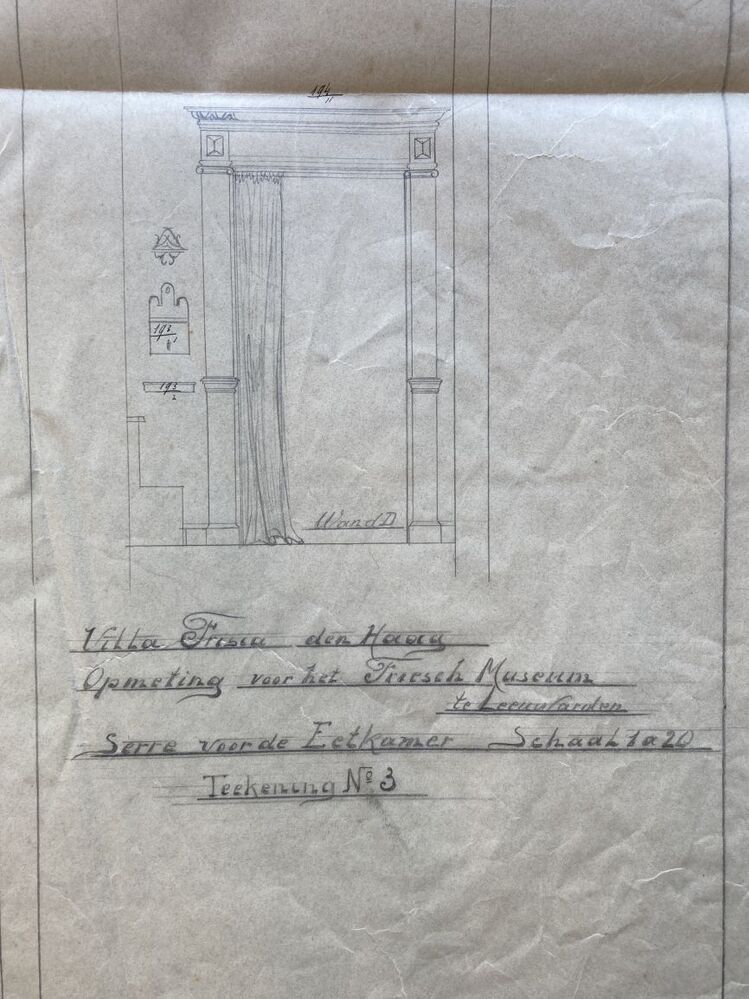 194/11
193/11
193/2
Wand D
Villa Frisia den Haag
Opmeting voor het Friesch Museum
te Leeuwarden
Serre voor de Eetkamer Schaal 1 a 20
Teekening Nº 3